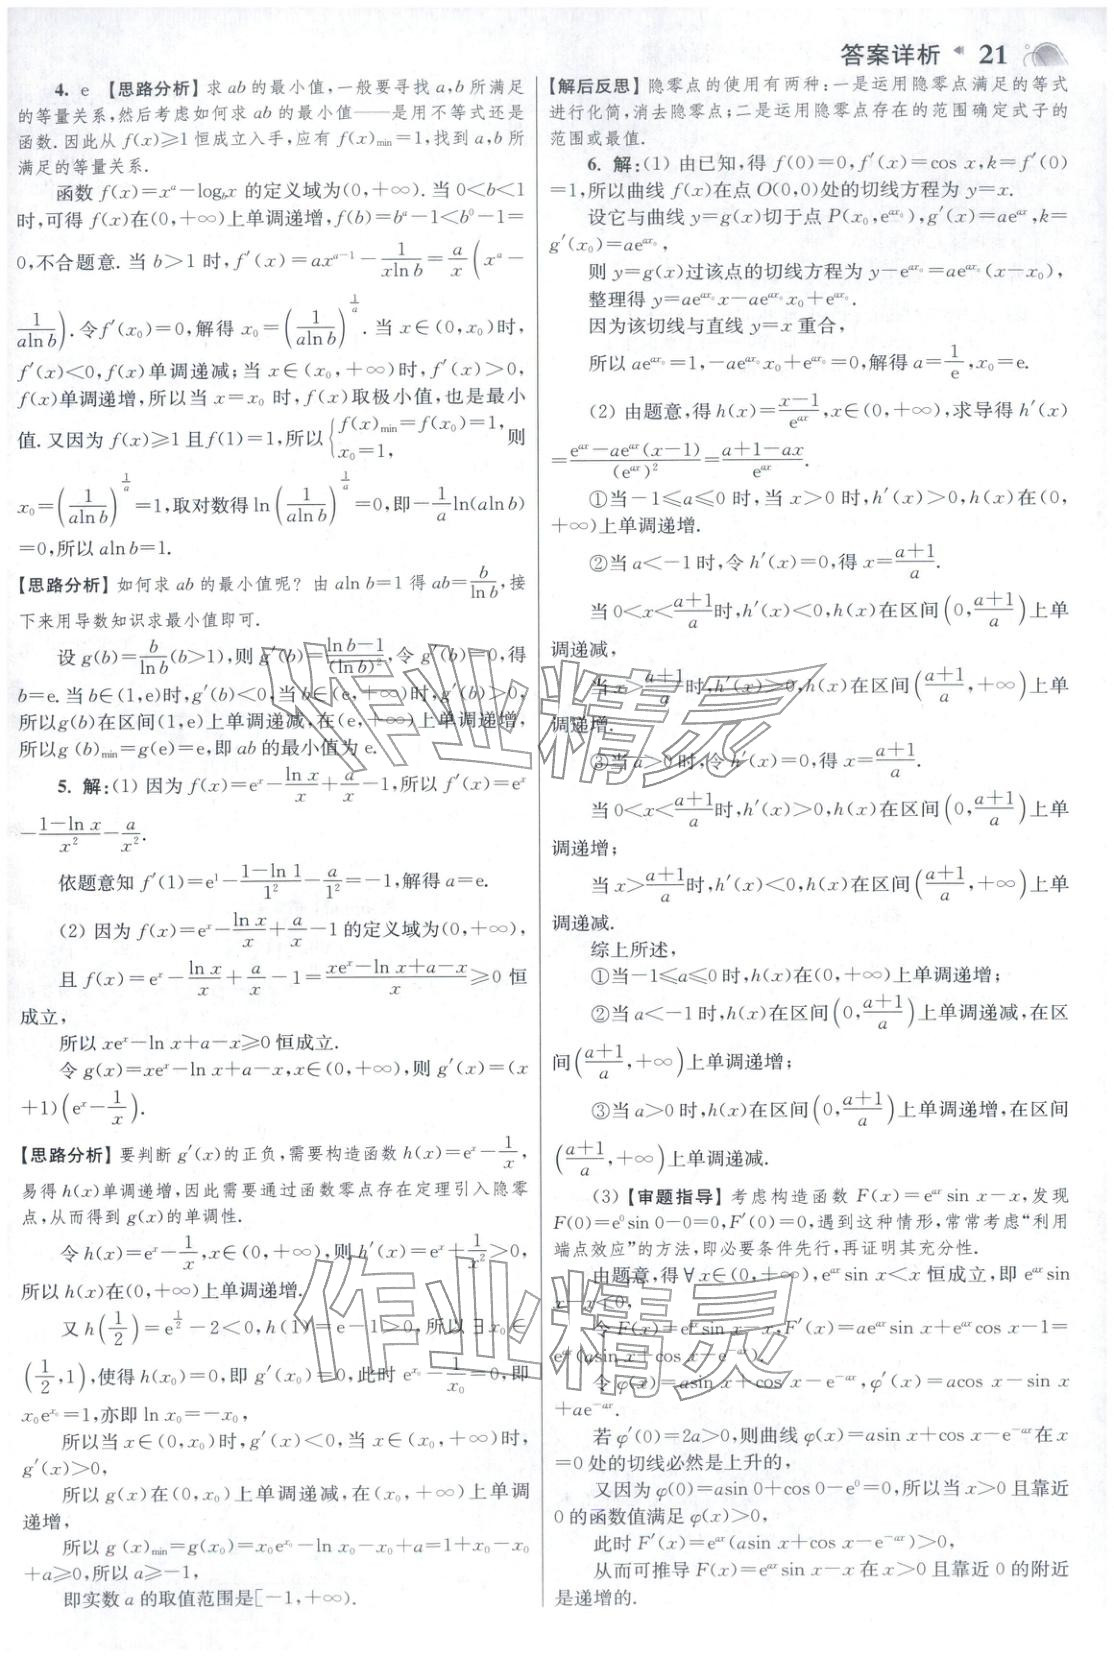 答案详析 21
4. e 【思路分析】求 ab 的最小值,一般要寻找 a,b 所满足
的等量关系,然后考虑如何求 ab 的最小值——是用不等式还是
函数.因此从 f(x)≥1 恒成立入手,应有 f(x)min=1,找到 a,b 所
满足的等量关系.
函数 f(x)=x^a-log_b x 的定义域为(0,+∞).当 0<b<1
时,可得 f(x)在(0,+∞)上单调递增,f(b)=b^a-1<b^0-1=
0,不合题意.当 b>1 时,f′(x)=ax^{a-1}-1/(xln b)=a/x(x^a-
1/(aln b)).令f′(x₀)=0,解得 x₀=(1/(aln b))^{1/a}.当 x∈(0,x₀)时,
f′(x)<0,f(x)单调递减;当 x∈(x₀,+∞)时,f′(x)>0,
f(x)单调递增,所以当 x=x₀ 时,f(x)取极小值,也是最小
值.又因为 f(x)≥1 且f(1)=1,所以{f(x)min=f(x₀)=1, x₀=1, 则
x₀=(1/(aln b))^{1/a}=1,取对数得 ln(1/(aln b))^{1/a}=0,即-1/a ln(aln b)
=0,所以 aln b=1.
【思路分析】如何求 ab 的最小值呢?由 aln b=1 得 ab=b/ln b,接
下来用导数知识求最小值即可.
设 g(b)=b/ln b(b>1),则 g′(b)=(ln b-1)/(ln b)²,令 g′(b)=0,得
b=e.当 b∈(1,e)时,g′(b)<0,当 b∈(e,+∞)时,g′(b)>0,
所以g(b)在区间(1,e)上单调递减,在(e,+∞)上单调递增,
所以g(b)min=g(e)=e,即 ab 的最小值为 e.
5. 解:(1) 因为 f(x)=e^x-ln x/x+a/x-1,所以 f′(x)=e^x
-(1-ln x)/x²-a/x².
依题意知 f′(1)=e¹-(1-ln 1)/1²-a/1²=-1,解得 a=e.
(2) 因为 f(x)=e^x-ln x/x+a/x-1 的定义域为(0,+∞),
且 f(x)=e^x-ln x/x+a/x-1=(xe^x-ln x+a-x)/x≥0 恒
成立,
所以 xe^x-ln x+a-x≥0 恒成立.
令 g(x)=xe^x-ln x+a-x,x∈(0,+∞),则 g′(x)=(x
+1)(e^x-1/x).
【思路分析】要判断 g′(x)的正负,需要构造函数 h(x)=e^x-1/x,
易得 h(x)单调递增,因此需要通过函数零点存在定理引入隐零
点,从而得到 g(x)的单调性.
令 h(x)=e^x-1/x,x∈(0,+∞),则 h′(x)=e^x+1/x²>0,
所以 h(x)在(0,+∞)上单调递增.
又 h(1/2)=e^{1/2}-2<0,h(1)=e-1>0,所以∃x₀∈
(1/2,1),使得 h(x₀)=0,即 g′(x₀)=0,此时 e^{x₀}-1/x₀=0,即
x₀e^{x₀}=1,亦即 ln x₀=-x₀,
所以当 x∈(0,x₀)时,g′(x)<0,当 x∈(x₀,+∞)时,
g′(x)>0,
所以 g(x)在(0,x₀)上单调递减,在(x₀,+∞)上单调
递增,
所以 g(x)min=g(x₀)=x₀e^{x₀}-ln x₀-x₀+a=1+x₀-x₀
+a≥0,所以 a≥-1,
即实数 a 的取值范围是[-1,+∞).
【解后反思】隐零点的使用有两种:一是运用隐零点满足的等式
进行化简,消去隐零点;二是运用隐零点存在的范围确定式子的
范围或最值.
6. 解:(1) 由已知,得 f(0)=0,f′(x)=cos x,k=f′(0)
=1,所以曲线 f(x)在点 O(0,0)处的切线方程为 y=x.
设它与曲线 y=g(x)切于点 P(x₀,e^{ax₀}),g′(x)=ae^{ax},k=
g′(x₀)=ae^{ax₀},
则 y=g(x)过该点的切线方程为 y-e^{ax₀}=ae^{ax₀}(x-x₀),
整理得 y=ae^{ax₀}x-ae^{ax₀}x₀+e^{ax₀}.
因为该切线与直线 y=x 重合,
所以 ae^{ax₀}=1,-ae^{ax₀}x₀+e^{ax₀}=0,解得 a=1/e,x₀=e.
(2) 由题意,得 h(x)=(x-1)/e^{ax},x∈(0,+∞),求导得 h′(x)
=(e^{ax}-ae^{ax}(x-1))/(e^{ax})²=(a+1-ax)/e^{ax}.
①当-1≤a≤0 时,当 x>0 时,h′(x)>0,h(x)在(0,
+∞)上单调递增.
②当 a<-1 时,令 h′(x)=0,得 x=(a+1)/a.
当 0<x<(a+1)/a时,h′(x)<0,h(x)在区间(0,(a+1)/a)上单
调递减,
当 x>(a+1)/a时,h′(x)>0,h(x)在区间((a+1)/a,+∞)上单
调递增.
③当 a>0 时,令 h′(x)=0,得 x=(a+1)/a.
当 0<x<(a+1)/a时,h′(x)>0,h(x)在区间(0,(a+1)/a)上单
调递增;
当 x>(a+1)/a时,h′(x)<0,h(x)在区间((a+1)/a,+∞)上单
调递减.
综上所述,
①当-1≤a≤0 时,h(x)在(0,+∞)上单调递增;
②当 a<-1 时,h(x)在区间(0,(a+1)/a)上单调递减,在区
间((a+1)/a,+∞)上单调递增;
③当 a>0 时,h(x)在区间(0,(a+1)/a)上单调递增,在区间
((a+1)/a,+∞)上单调递减.
(3)【审题指导】考虑构造函数 F(x)=e^{ax}sin x-x,发现
F(0)=e⁰sin 0-0=0,F′(0)=0,遇到这种情形,常常考虑“利用
端点效应”的方法,即必要条件先行,再证明其充分性.
由题意,得∀x∈(0,+∞),e^{ax}sin x<x 恒成立,即 e^{ax}sin
x-x<0,
令 F(x)=e^{ax}sin x-x,F′(x)=ae^{ax}sin x+e^{ax}cos x-1=
e^{ax}(asin x+cos x-e^{-ax}).
令 φ(x)=asin x+cos x-e^{-ax},φ′(x)=acos x-sin x
+ae^{-ax}.
若 φ′(0)=2a>0,则曲线 φ(x)=asin x+cos x-e^{-ax}在 x
=0 处的切线必然是上升的,
又因为 φ(0)=asin 0+cos 0-e⁰=0,所以当 x>0 且靠近
0 的函数值满足 φ(x)>0,
此时 F′(x)=e^{ax}(asin x+cos x-e^{-ax})>0,
从而可推导 F(x)=e^{ax}sin x-x 在 x>0 且靠近 0 的附近
是递增的.
作业精灵
作业精灵